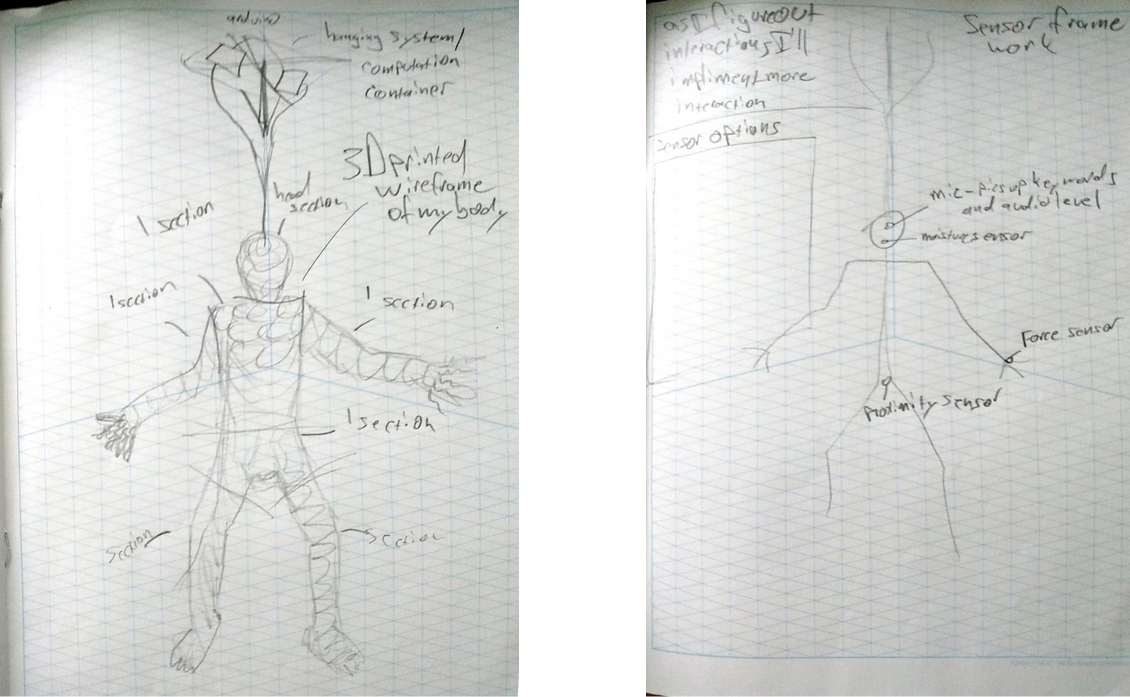 arduino
hanging system/
computation
container
3D printed
wireframe
of my body
head
section
1 section
1 section
1 section
1 section
section
section
as I figure out
interactions I'll
impliment more
interaction
sensor options
Sensor frame
work
mic-picsup key words
and audio level
moisture sensor
Force sensor
Proximity sensor